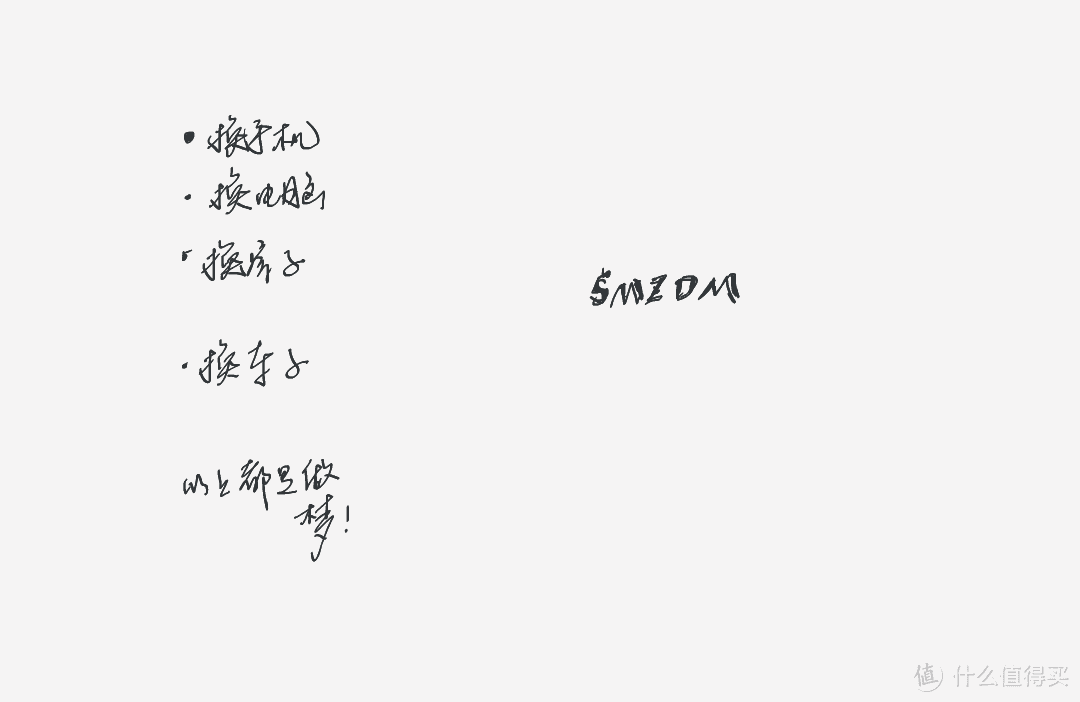 • 换手机
• 换电脑
• 换房子
• 换车子
以上都是做
梦!
SMZDM
值 什么值得买